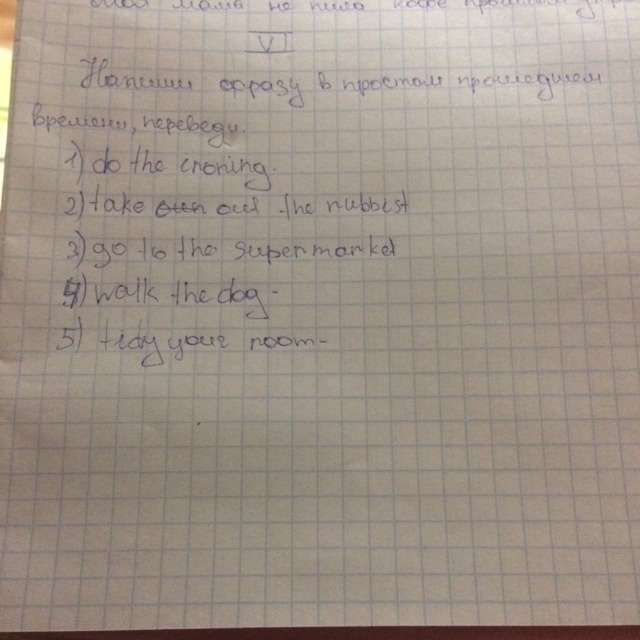 мама не пила кофе прошлым
VI
Напиши фразу в простом прошедшем
времени, переведи.
1) do the ironing.
2) take out the rubbist
3) go to the supermarket
4) walk the dog -
5) tidy your room -